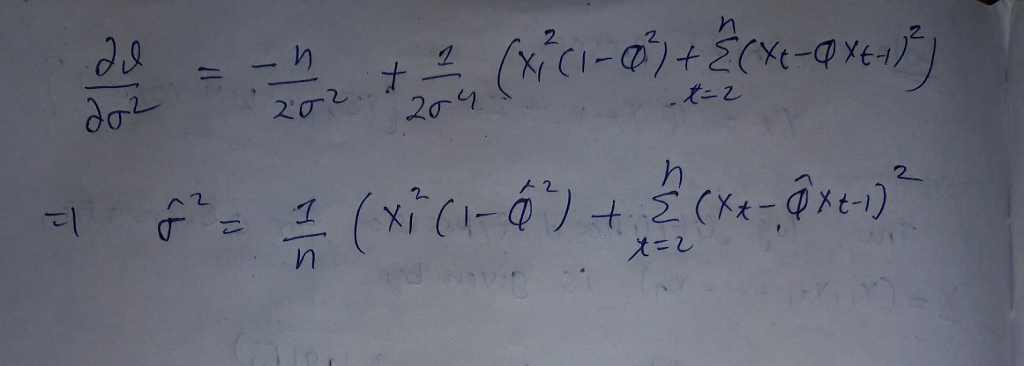 ∂ℓ/∂σ² = -n/2σ² + 1/2σ⁴ (X₁²(1-Φ²) + Σₜ₌₂ⁿ (Xₜ-ΦXₜ₋₁)²)
⇒ σ̂² = 1/n (X₁²(1-Φ̂²) + Σₜ₌₂ⁿ (Xₜ-Φ̂Xₜ₋₁)²